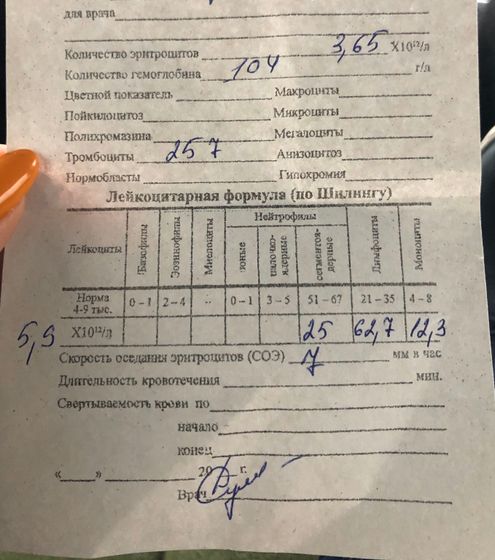 для врача
Количество эритроцитов 3,65 X10¹²/л
Количество гемоглобина 104 г/л
Цветной показатель Макроциты
Пойкилоцитоз Микроциты
Полихромазина Мегалоциты
Тромбоциты 257 Анизоцитоз
Нормобласты Гипохромия
Лейкоцитарная формула (по Шилингу)
Лейкоциты Базофилы Эозинофилы Миелоциты Нейтрофилы юные палочко-ядерные сегментоя-дерные Лимфоциты Моноциты
Норма 4-9 тыс. 0 – 1 2 – 4 .. 0 – 1 3 – 5 51 – 67 21 – 35 4 – 8
5,9 X10¹²/л 25 62,7 12,3
Скорость оседания эритроцитов (СОЭ) 7 мм в час
Длительность кровотечения мин.
Свертываемость крови по
начало
конец
« » 20 г.
Врач